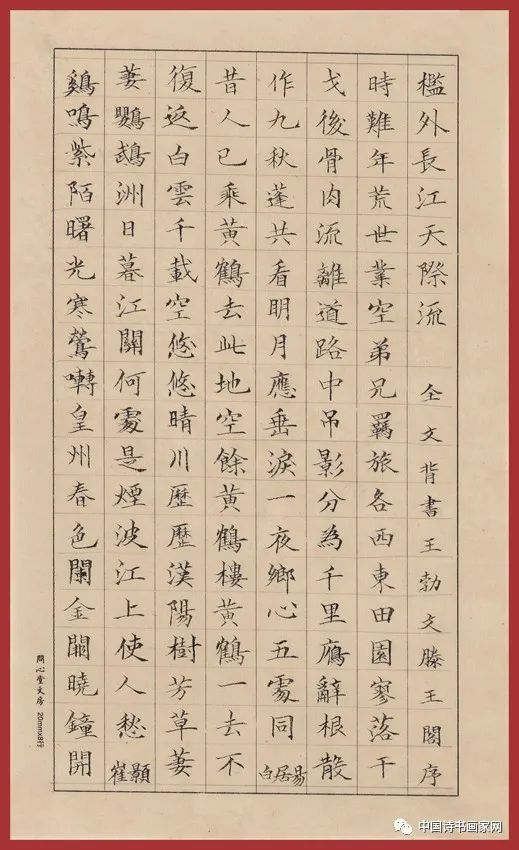 檻外長江天際流 仝文背書王勃文滕王閣序
時難年荒世業空弟兄羈旅各西東田園寥落干
戈後骨肉流離道路中吊影分為千里鴈辭根散
作九秋蓬共看明月應垂淚一夜鄉心五處同 白居易
昔人已乘黃鶴去此地空餘黃鶴樓黃鶴一去不
復返白雲千載空悠悠晴川歷歷漢陽樹芳草萋
萋鸚鵡洲日暮江關何處是煙波江上使人愁 崔顥
鷄鳴紫陌曙光寒鶯囀皇州春色闌金闕曉鐘開
問心堂文房 20mmx8行
中国诗书画家网